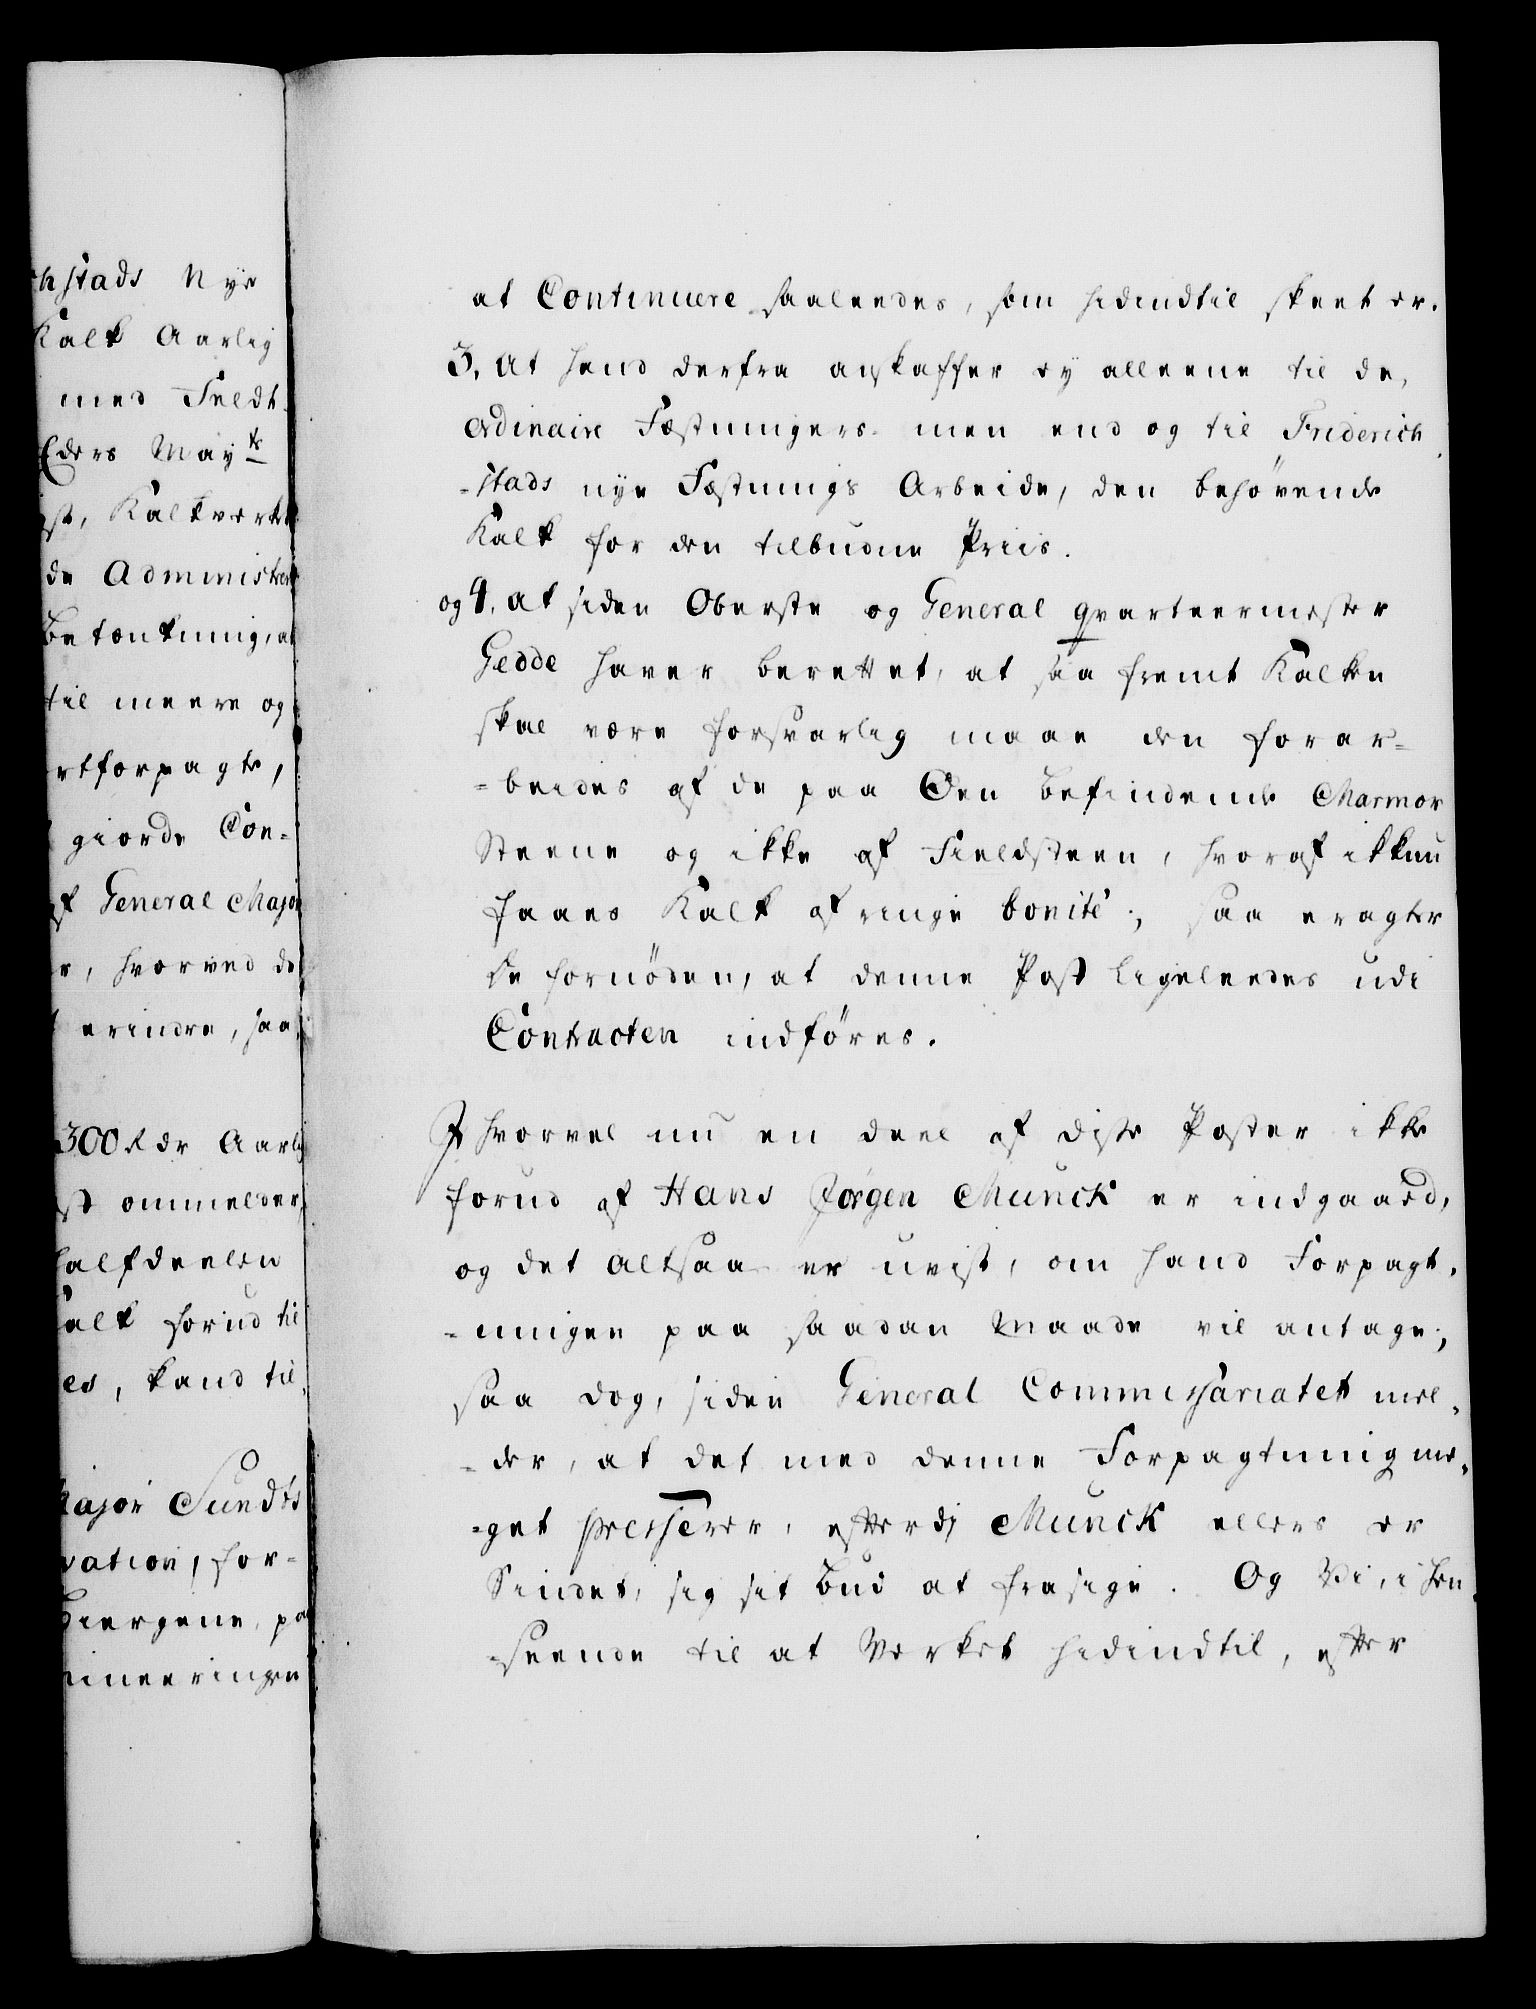 hstads Nye
Kalk Aarlig
med Feldt-
Eders May<sup>ts</sup>
st, Kalkverket
de Administrer
Betænkning, at
til meere og
rtforpagte,
giorde Con=
af General Major
r, hvorved de
erindre, saa
300 Rdr Aarlig
st ommelder,
halfdeelen
alk forud til
es, kand til,
Major Sundts
vation, for=
Biergene, paa
mineeringen
at Continuere saaleedes, som hidindtil skeet er.
3. At hand derfra anskaffer ey alleene til de
ordinaire Fæstningers men end og til Friderich
-stads nye Fæstnings Arbeide, den behövende
Kalk for den tilbudne Priis.
og 4. At siden Oberste og General Qvarteermester
Gedde haver berettet, at saa fremt Kalken
skal være forsvarlig maae den forar=
=beides af de paa Öen befindende Marmor
Steene og ikke af Fieldsteen, hvoraf ikkun
faaes Kalk af ringe bonité; saa eragter
de fornöden, at denne Post ligeleedes udi
Contracten indföres.
Ihvorvel nu en deel af disse Poster ikke
forud af Hans Jörgen Munck er indgaaed,
og det altsaa er uvist, om hand Forpagt-
-ningen paa saadan Maade vil antage;
saa dog, siden General Commissariatet mel-
-der, at det med denne Forpagtning me-
-get presserer, efterdj Munck ellers er
Sindet, sig sit bud at frasige. Og Vi, i hen-
-seende til at Verket hidindtil, efter